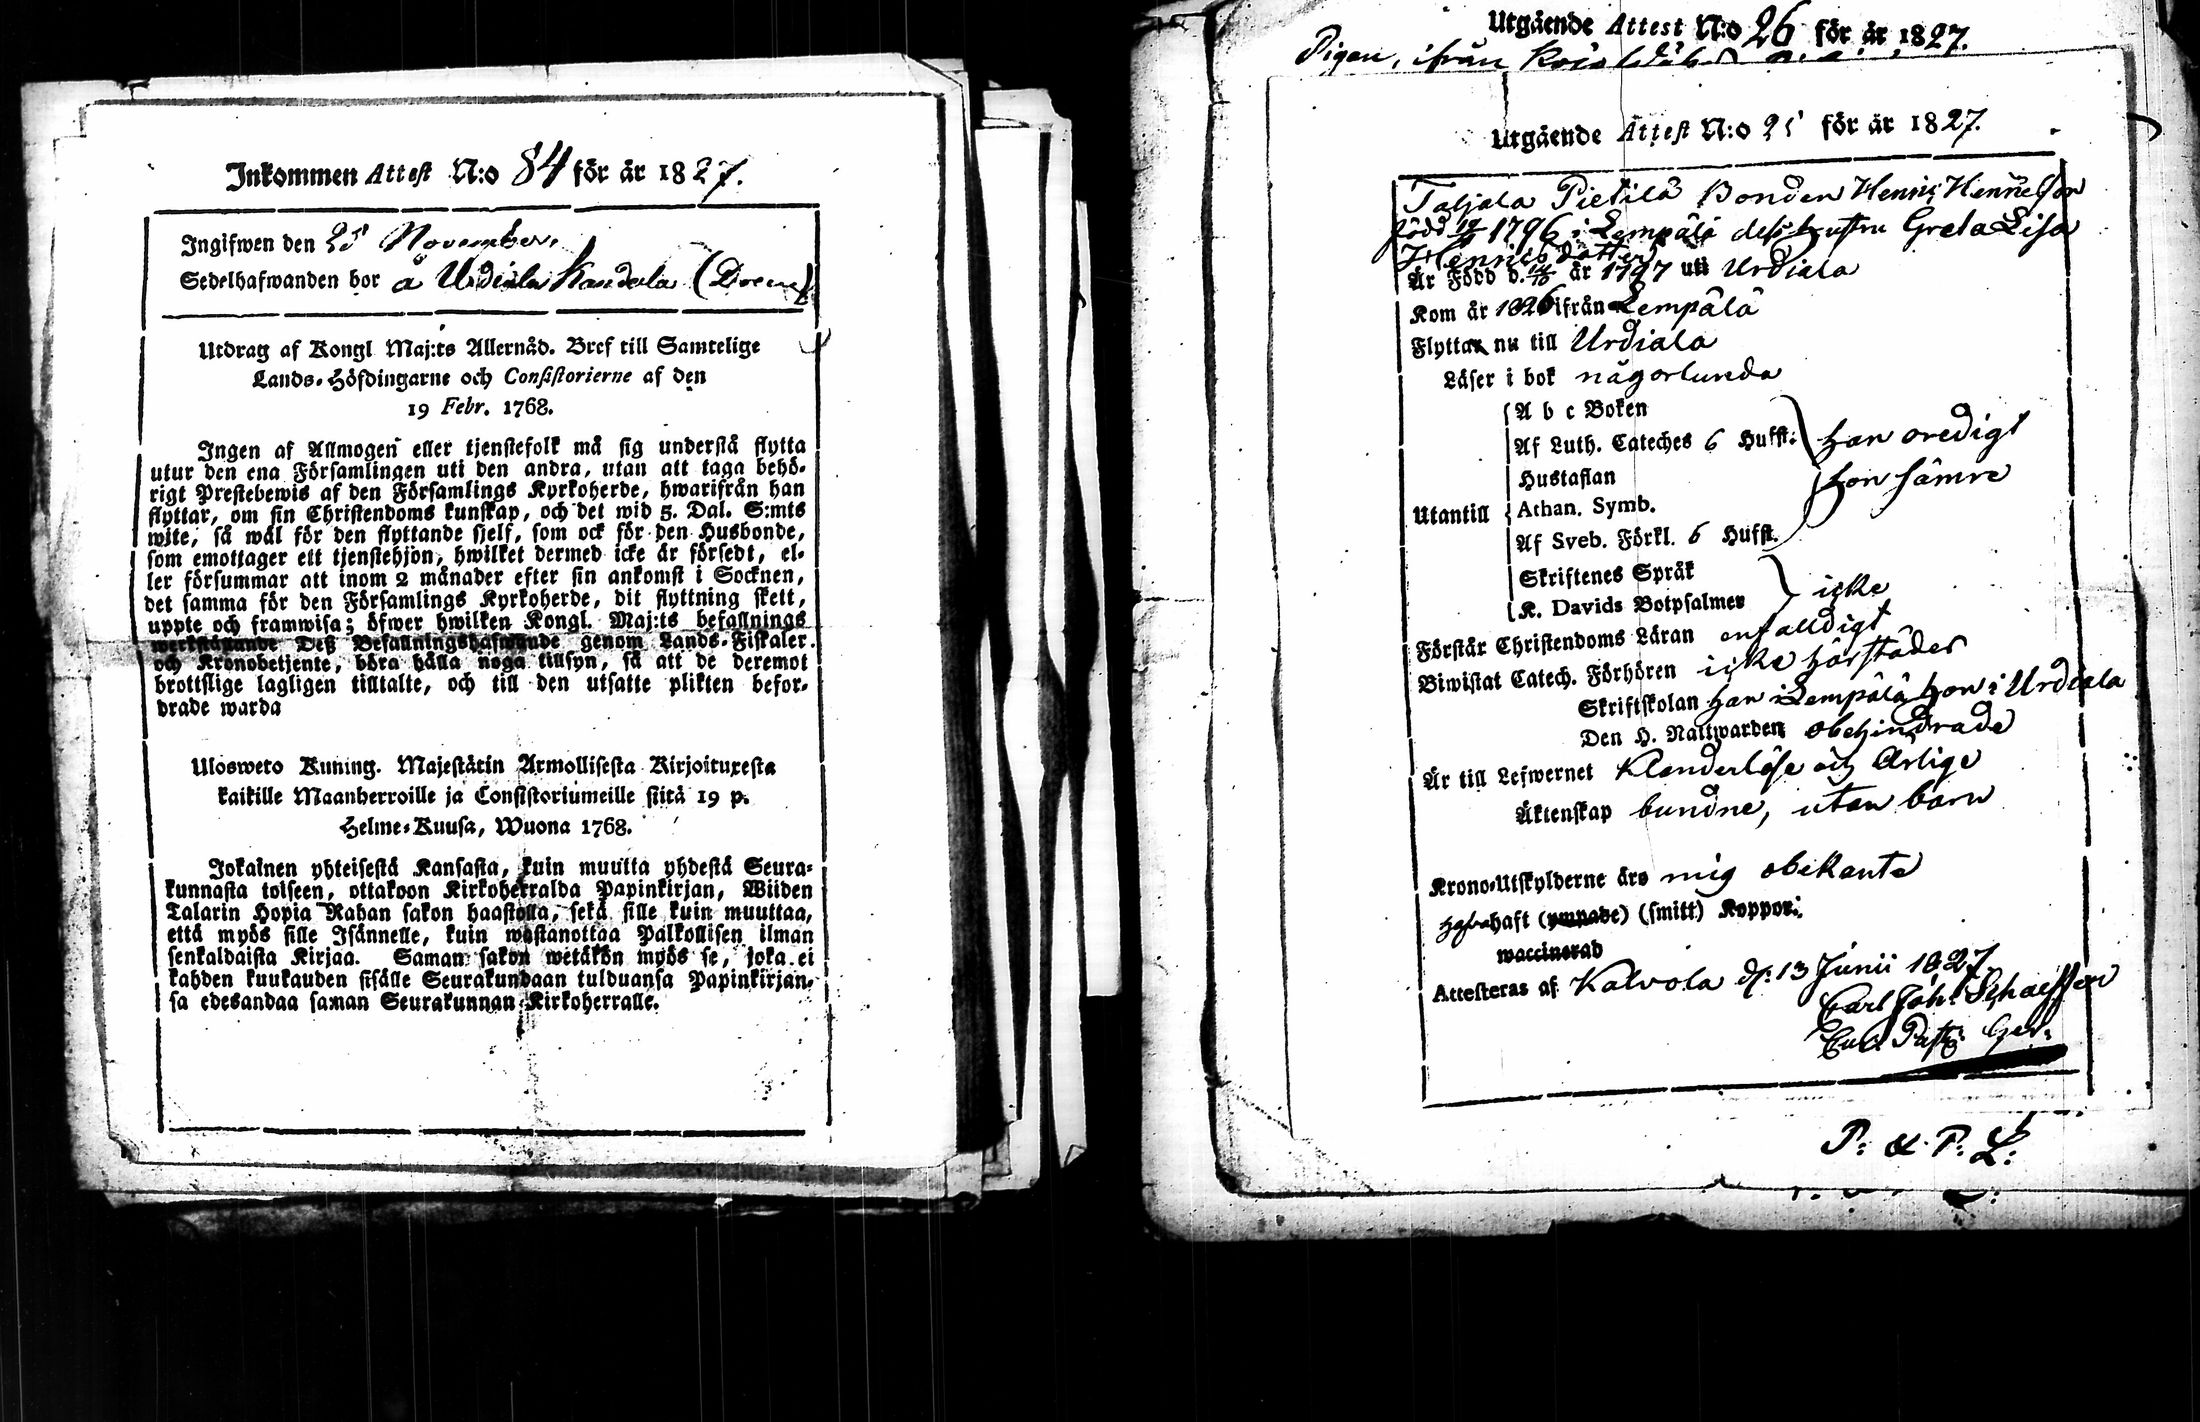 Inkommen Attest N:o 84 för år 1827.
Ingifwen den 25 November.
Sedelhafwanden bor å Urdiala Kandela
Utdrag af Kongl Maj:ts Allernåd. Bref till Samtelige
Lands-Höfdingarne och Consistorierne af den
19 Febr. 1768.
Ingen af Allmogen eller tjenstefolk må sig understå flytta
utur den ena Församlingen uti den andra, utan att taga behö-
rigt Prestebewis af den Församlings Kyrkoherde, hwarifrån han
flyttar, om sin Christendoms kunskap, och det wid 5. Dal. S:mts
wite, så wäl för den flyttande sjelf, som ock för den Husbonde,
som emottager ett tjenstehjon, hwilket dermed icke är försedt, el-
ler försummar att inom 2 månader efter sin ankomst i Socknen,
det samma för den Församlings Kyrkoherde, dit flyttning skett,
uppte och framwisa; öfwer hwilken Kongl. Maj:ts befallnings
werkställande Deß Befallningshafwande genom Lands-Fiskaler
och Kronobetjente, böra hålla noga tillsyn, så att de deremot
brottslige lagligen tilltalte, och till den utsatte plikten befor-
drade warda
Ulosweto Kuning. Majestätin Armollisesta Kirjoituxesta
kaikille Maanherroille ja Consistoriumeille siitä 19 p.
Helme-Kuusa, Wuona 1768.
Jokainen yhteisestä Kansasta, kuin muutta yhdestä Seura-
kunnasta toiseen, ottakoon Kirkoherralda Papinkirjan, Wiiden
Talarin Hopia Rahan sakon haastolla, sekä sille kuin muuttaa,
että myös sille Isännelle, kuin wastanottaa Palkollisen ilman
senkaldaista Kirjaa. Saman sakon wetäkön myös se, joka ei
kahden kuukauden sisälle Seurakundaan tulduansa Papinkirjan-
sa edesandaa saman Seurakunnan Kirkoherralle.
Utgående Attest N:o 26 för år 1827.
Pigan, ifrån
Utgående Attest N:o 25 för år 1827.
Taljala Pietilä Bonden Henric Henricsson
född 1796 i Lempälä dess hustru Greta Lisa
Henricsdotter
Är Född d. år 1797 uti Urdiala
Kom år 1826 ifrån Lempälä
Flyttar nu till Urdiala
Läser i bok någorlunda
A b c Boken
Af Luth. Cateches 6 Hufst: han oredigt
Hustaflan hon sämre
Utantill Athan. Symb.
Af Sveb. Förkl. 6 Hufst.
Skriftenes Språk
K. Davids Botpsalmer icke
Förstår Christendoms Läran enfaldigt
Biwistat Catech. Förhören icke härstädes
Skriftskolan han i Lempälä hon i Urdiala
Den H. Nattwarden obehindrade
Är till Lefwernet Klanderlöse och Ärlige
Äktenskap bundne, utan barn
Krono-Utskylderne äro mig obekante
Hafva haft (ympade) (smitt) Koppor.
waccinerad
Attesteras af Kalvola d: 13 Junii 1827
Carl Joh: Schaeffer
Past:
P: & P: L: